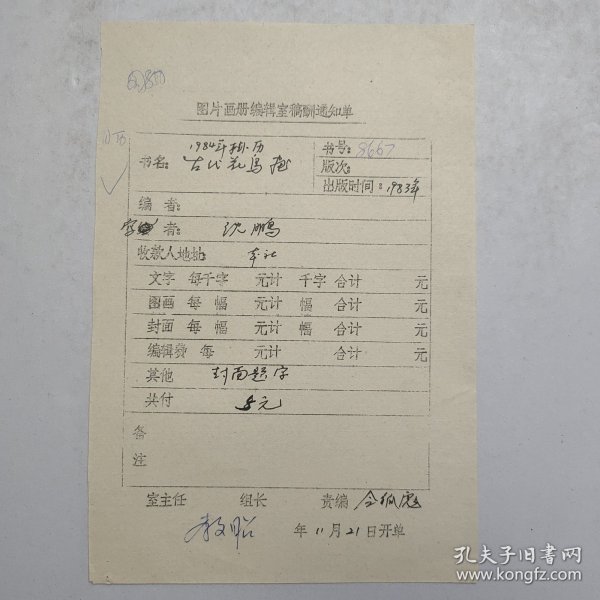 图片画册编辑室稿酬通知单
1984年掛历
书名: 古代花鸟画
书号: 8667
版次:
出版时间: 1983年
编 者:
者: 沈鹏
收款人地址: 本社
文字 每千字 元计 千字 合计 元
图画 每 幅 元计 幅 合计 元
封面 每 幅 元计 幅 合计 元
编辑费 每 元计 合计 元
其他 封面题字
共付 5元
备
注
室主任 组长 责编
年 11月21日开单
孔夫子旧书网
www.kongfz.com